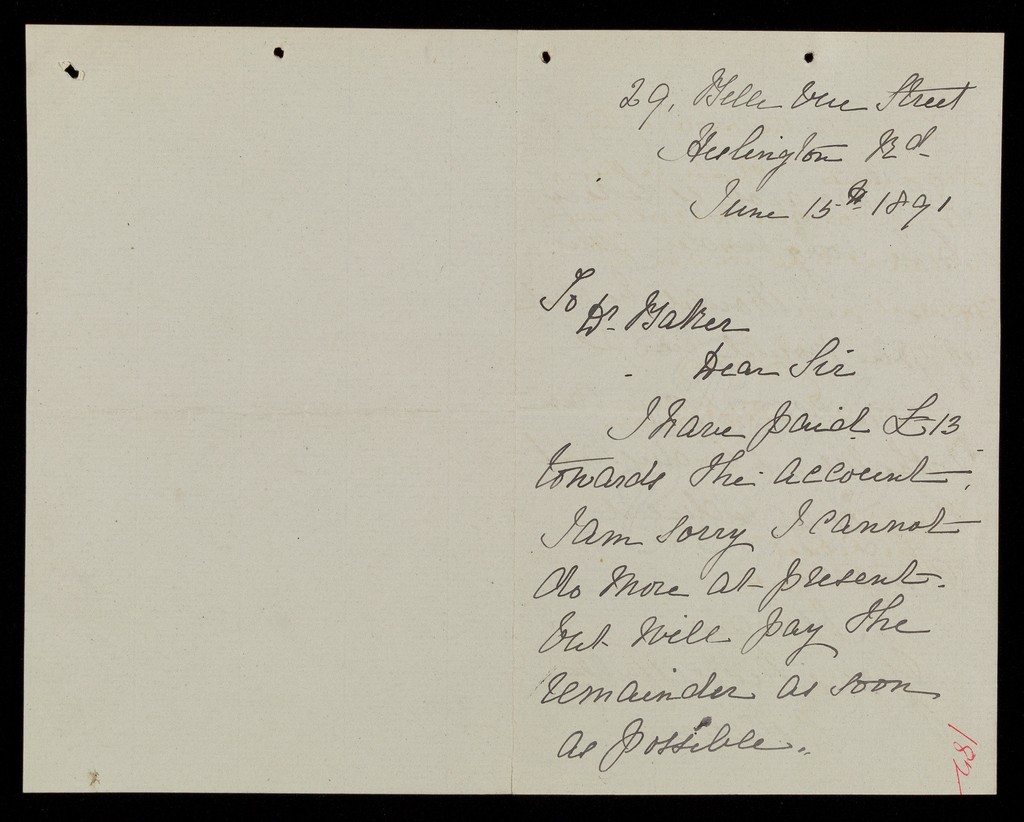 29, Belle Vue Street
Heslington Rd
June 15th 1891
To
Dr. Baker
Dear Sir
I have paid £13
towards the account.
I am sorry I cannot
do more at present.
but will pay the
remainder as soon
as possible.